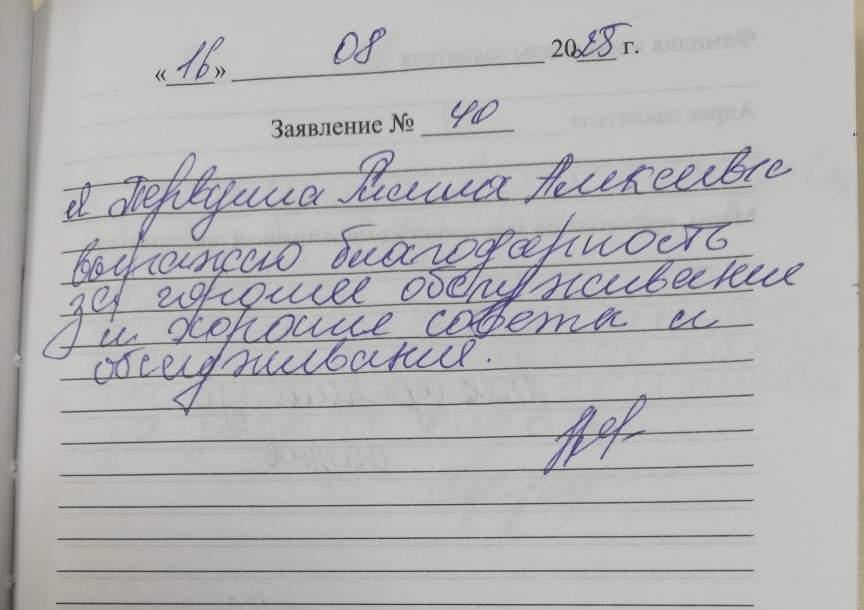 «16» 08 2025 г.
Заявление № 40
я Алексеевна
выражаю благодарность
за хорошее обслуживание
и хорошие советы и
обслуживание.